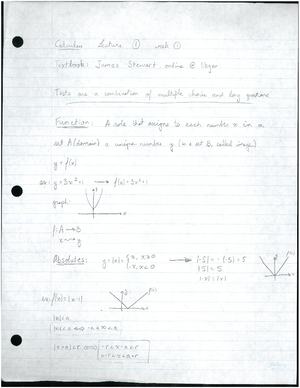 Calculus Lecture ① week ①
Textbook: James Stewart, online @
Tests are a combination of multiple choice and long questions
Function: A rule that assigns to each number x in a
set A (domain) a unique number y (in a set B, called image)
y = f(x)
ex: y = 3x² + 1 → f(x) = 3x² + 1
graph:
f: A → B
x → y
Absolutes: y = |x| = { x, x ≥ 0 → |-5| = -(-5) = 5
-x, x < 0 |5| = 5
|-x| = |x|
ex: f(x) = |x-1|